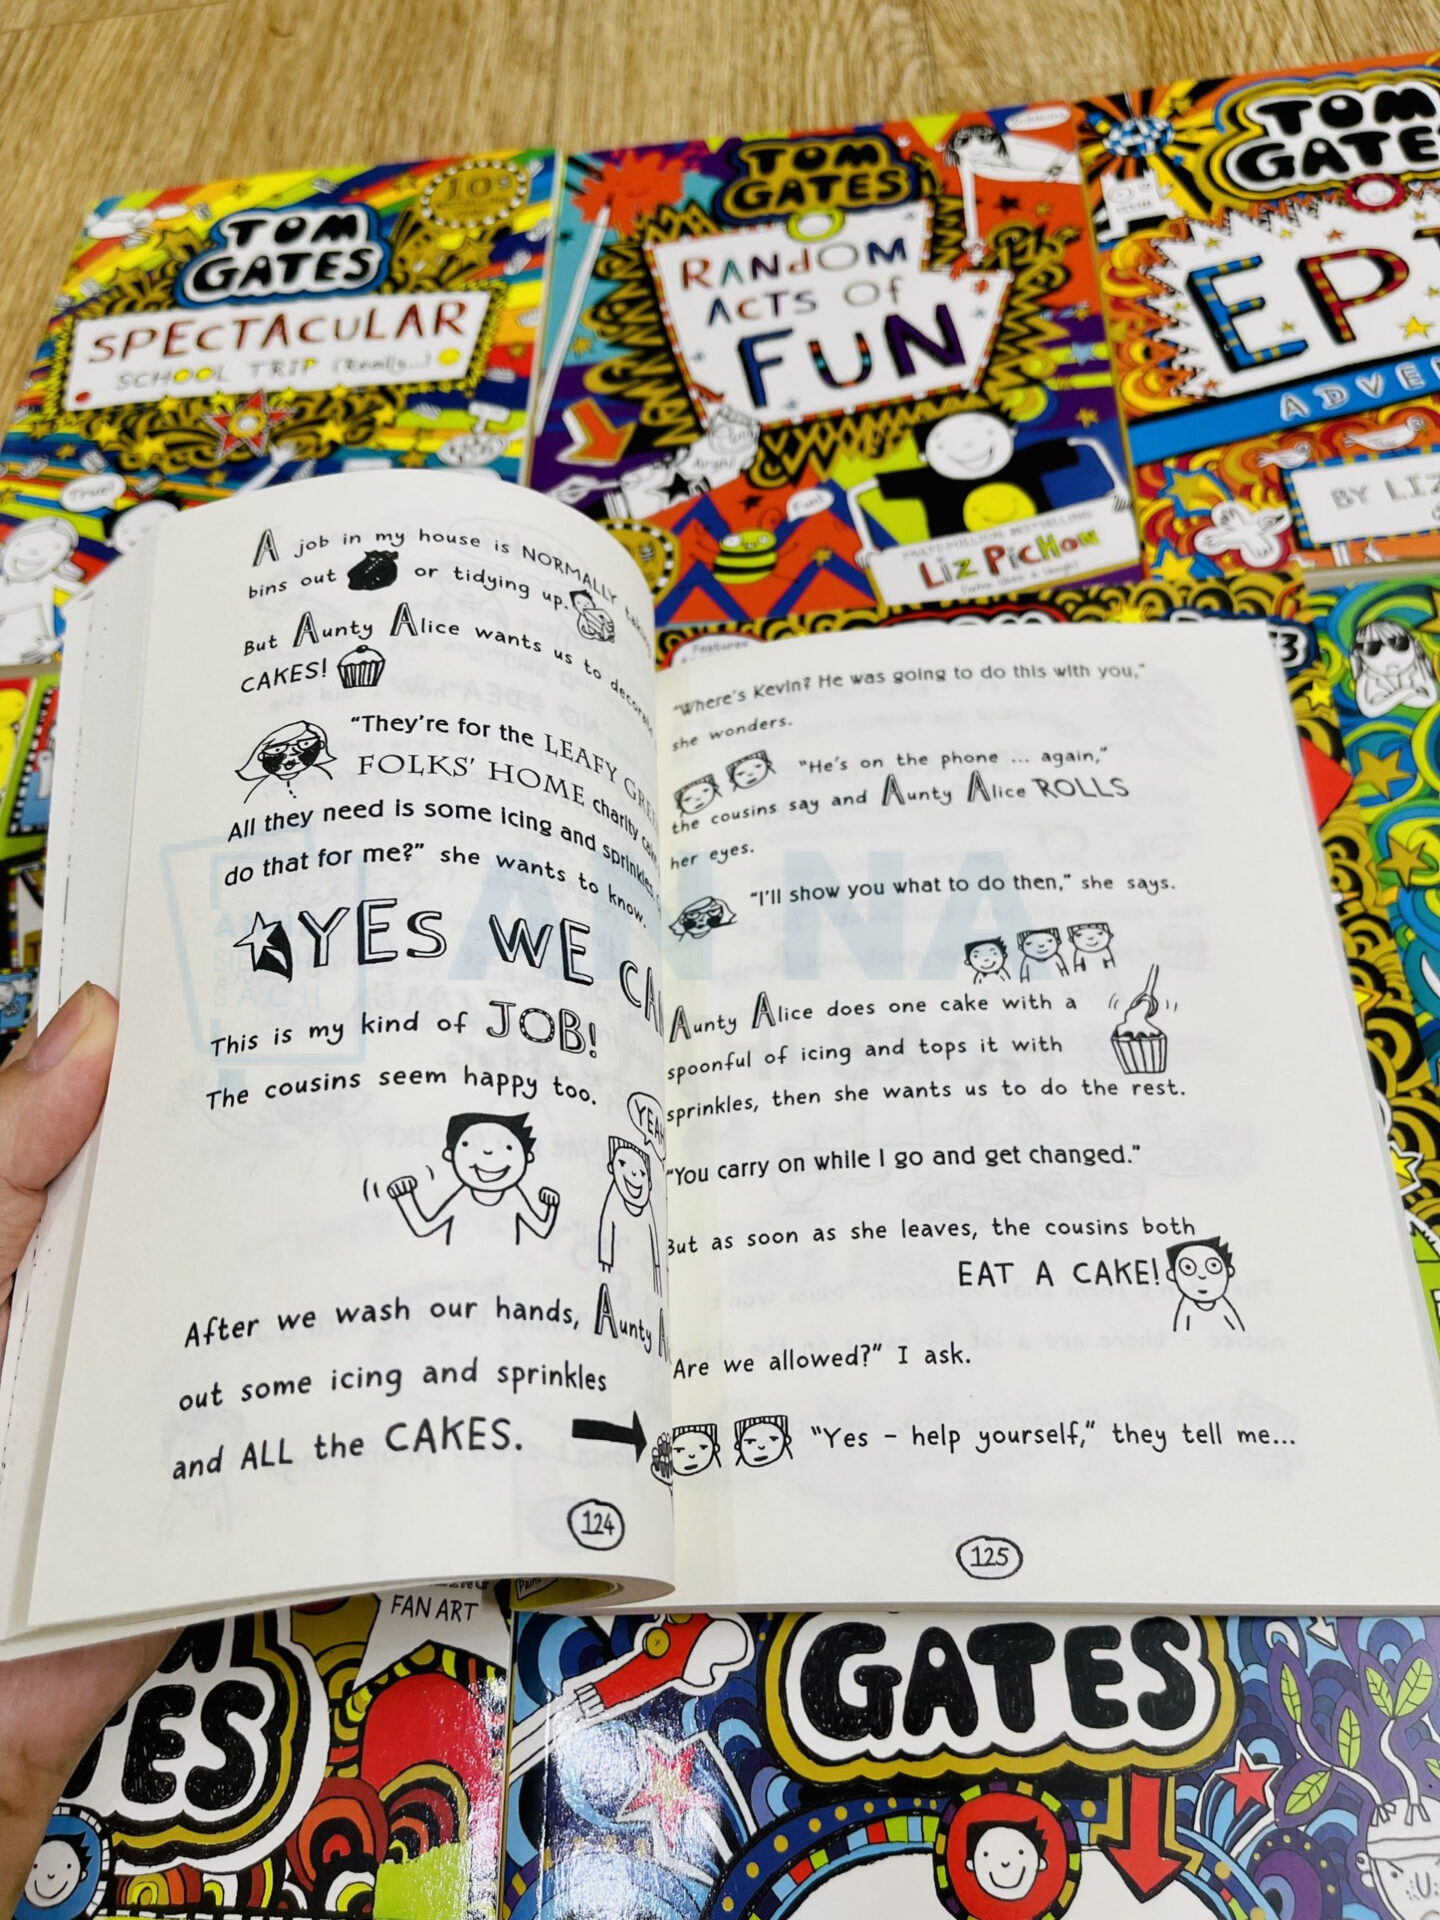 10
TOM
GATES
SPECTACULAR
SCHOOL TRIP (Really...)
True!
TOM
GATES
RANdOM
ACTS OF
FUN
Fun!
MULTI-MILLION BESTSELLING
LIZ PICHON
(who likes a laugh)
TOM
GATE
EP
ADVE
BY LIZ
Features
A job in my house is NORMALLY
bins out or tidying up.
But Aunty Alice wants us to decorate
CAKES!
"They're for the LEAFY GREE
FOLKS' HOME charity cake
All they need is some icing and sprinkles.
do that for me?" she wants to know.
YES WE CAN
This is my kind of JOB!
The cousins seem happy too.
YEAH
After we wash our hands, Aunty A
out some icing and sprinkles
and ALL the CAKES.
124
"Where's Kevin? He was going to do this with you,"
she wonders.
"He's on the phone ... again,"
the cousins say and Aunty Alice ROLLS
her eyes.
"I'll show you what to do then," she says.
Aunty Alice does one cake with a
spoonful of icing and tops it with
sprinkles, then she wants us to do the rest.
"You carry on while I go and get changed."
But as soon as she leaves, the cousins both
EAT A CAKE!
"Are we allowed?" I ask.
"Yes – help yourself," they tell me...
125
AN NA
FAN ART
TES
GATES